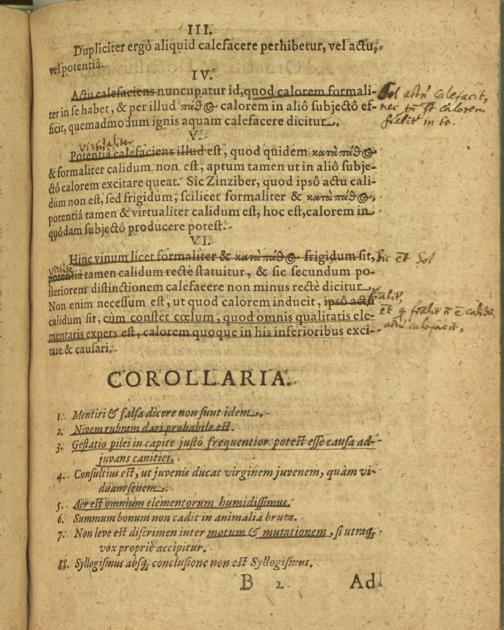 III.
Dupliciter ergò aliquid calefacere perhibetur, vel actu,
vel potentiâ.
IV.
Actu calefaciens nuncupatur id, quod calorem formali-
ter in se habet, & per illud πάθ⊙ calorem in aliô subjectô ef-
ficit, quemadmodum ignis aquam calefacere dicitur.
Sol actu calefacit,
V.
virtualiter
Potentiâ calefaciens illud est, quod quidem κατὰ πάθ⊙
& formaliter calidum non est, aptum tamen ut in aliô subje-
ctô calorem excitare queat. Sic Zinziber, quod ipsô actu cali-
dum non est, sed frigidum, scilicet formaliter & κατὰ πάθ⊙,
potentiâ tamen & virtualiter calidum est, hoc est, calorem in
quôdam subjectô producere potest.
VI.
Hinc vinum licet formaliter & κατὰ πάθ⊙ frigidum sit,
sic et Sol
potentiâ tamen calidum rectè statuitur, & sic secundum po-
steriorem distinctionem calefacere non minus rectè dicitur.
Non enim necessum est, ut quod calorem inducit, ipsô actu
calidum sit, cùm constet cœlum, quod omnis qualitatis ele-
mentaris expers est, calorem quoque in his inferioribus exci-
tare & causari.
actu calefacit,
COROLLARIA.
1. Mentiri & falsa dicere non sunt idem.
2. Nivem rubram dari probabile est.
3. Gestatio pilei in capite justô frequentior potest esse causa ad-
juvans canitiei.
4. Consultius est, ut juvenis ducat virginem juvenem, quàm vi-
duam senem.
5. Aer est omnium elementorum humidissimus.
6. Summum bonum non cadit in animalia bruta.
7. Non leve est discrimen inter motum & mutationem, si utraq;
vox propriè accipitur.
8. Syllogismus absq; conclusione non est Syllogismus.
B 2 Ad